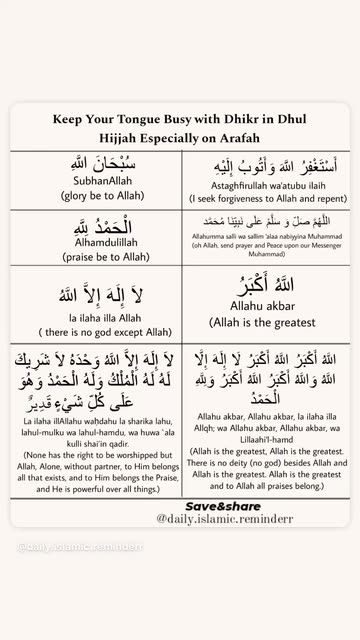 Keep Your Tongue Busy with Dhikr in Dhul
Hijjah Especially on Arafah
سُبْحَانَ اللَّهِ
SubhanAllah
(glory be to Allah)
أَسْتَغْفِرُ اللَّهَ وَأَتُوبُ إِلَيْهِ
Astaghfirullah wa'atubu ilaih
(I seek forgiveness to Allah and repent)
الْحَمْدُ لِلَّهِ
Alhamdulillah
(praise be to Allah)
اللَّهُمَّ صَلِّ وَ سَلِّمْ عَلَى نَبِيِّنَا مُحَمَّد
Allahumma salli wa sallim 'alaa nabiyyina Muhammad
(oh Allah, send prayer and Peace upon our Messenger
Muhammad)
لَا إِلَهَ إِلَّا اللَّهُ
la ilaha illa Allah
( there is no god except Allah)
اللَّهُ أَكْبَرُ
Allahu akbar
(Allah is the greatest
لَا إِلَهَ إِلَّا اللَّهُ وَحْدَهُ لَا شَرِيكَ
لَهُ لَهُ الْمُلْكُ وَلَهُ الْحَمْدُ وَهُوَ
عَلَى كُلِّ شَيْءٍ قَدِيرٌ
La ilaha illAllahu waḥdahu la sharika lahu,
lahul-mulku wa lahul-hamdu, wa huwa `ala
kulli shai'in qadir.
(None has the right to be worshipped but
Allah, Alone, without partner, to Him belongs
all that exists, and to Him belongs the Praise,
and He is powerful over all things.)
اللهُ أَكْبَرُ اللهُ أَكْبَرُ لَا إِلَهَ إِلَّا
اللهُ وَاللهُ أَكْبَرُ اللهُ أَكْبَرُ وَلِلَّهِ
الْحَمْدُ
Allahu akbar, Allahu akbar, la ilaha illa
Allqh; wa Allahu akbar, Allahu akbar, wa
Lillaahi'l-hamd
(Allah is the greatest, Allah is the greatest.
There is no deity (no god) besides Allah and
Allah is the greatest. Allah is the greatest
and to Allah all praises belong.)
Save&share
@daily.islamic.reminderr
@daily.islamic.reminderr